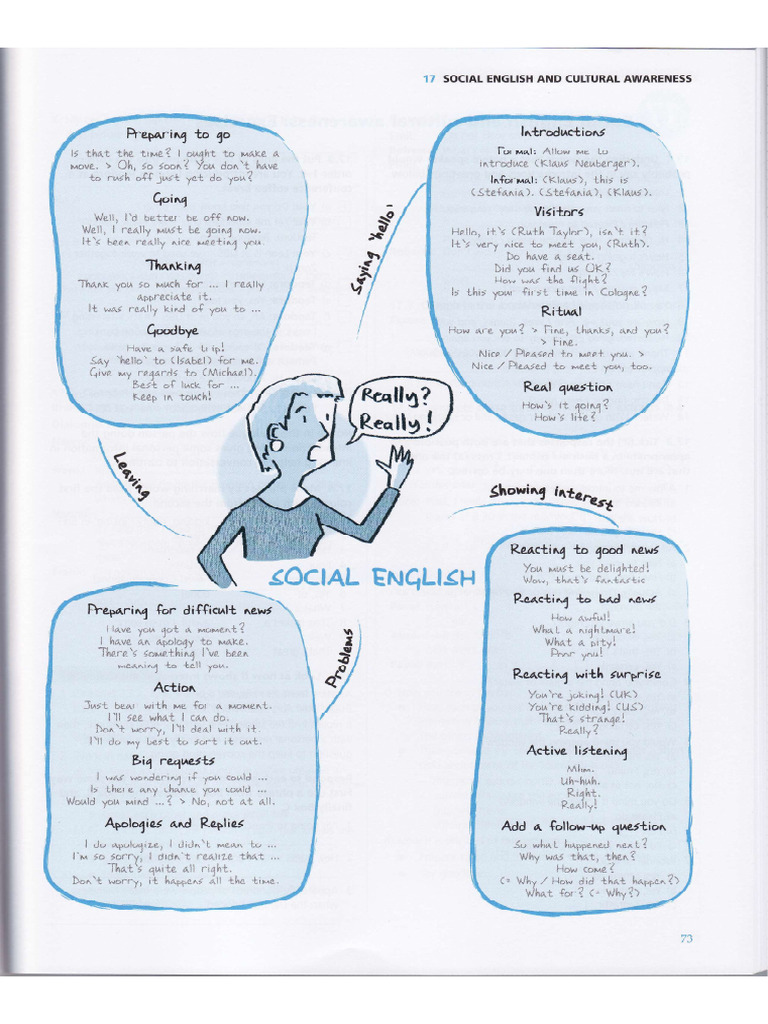 17 SOCIAL ENGLISH AND CULTURAL AWARENESS
Preparing to go
Is that the time? I ought to make a
move. > Oh, so soon? You don't have
to rush off just yet do you?
Going
Well, I'd better be off now.
Well, I really must be going now.
It's been really nice meeting you.
Thanking
Thank you so much for ... I really
appreciate it.
It was really kind of you to ...
Goodbye
Have a safe trip!
Say 'hello' to (Isabel) for me.
Give my regards to (Michael).
Best of luck for ...
Keep in touch!
Leaving
Saying 'hello'
Introductions
Formal: Allow me to
introduce (Klaus Neuberger).
Informal: (Klaus), this is
(Stefania). (Stefania), (Klaus).
Visitors
Hello, it's (Ruth Taylor), isn't it?
It's very nice to meet you, (Ruth).
Do have a seat.
Did you find us OK?
How was the flight?
Is this your first time in Cologne?
Ritual
How are you? > Fine, thanks, and you?
> Fine.
Nice / Pleased to meet you. >
Nice / Pleased to meet you, too.
Real question
How's it going?
How's life?
Really?
Really!
SOCIAL ENGLISH
Showing interest
Reacting to good news
You must be delighted!
Wow, that's fantastic
Reacting to bad news
How awful!
What a nightmare!
What a pity!
Poor you!
Reacting with surprise
You're joking! (UK)
You're kidding! (US)
That's strange!
Really?
Active listening
Mhm.
Uh-huh.
Right.
Really!
Add a follow-up question
So what happened next?
Why was that, then?
How come?
(= Why / How did that happen?)
What for? (= Why?)
Problems
Preparing for difficult news
Have you got a moment?
I have an apology to make.
There's something I've been
meaning to tell you.
Action
Just bear with me for a moment.
I'll see what I can do.
Don't worry, I'll deal with it.
I'll do my best to sort it out.
Big requests
I was wondering if you could ...
Is there any chance you could ...
Would you mind ...? > No, not at all.
Apologies and Replies
I do apologize, I didn't mean to ...
I'm so sorry, I didn't realize that ...
That's quite all right.
Don't worry, it happens all the time.
73